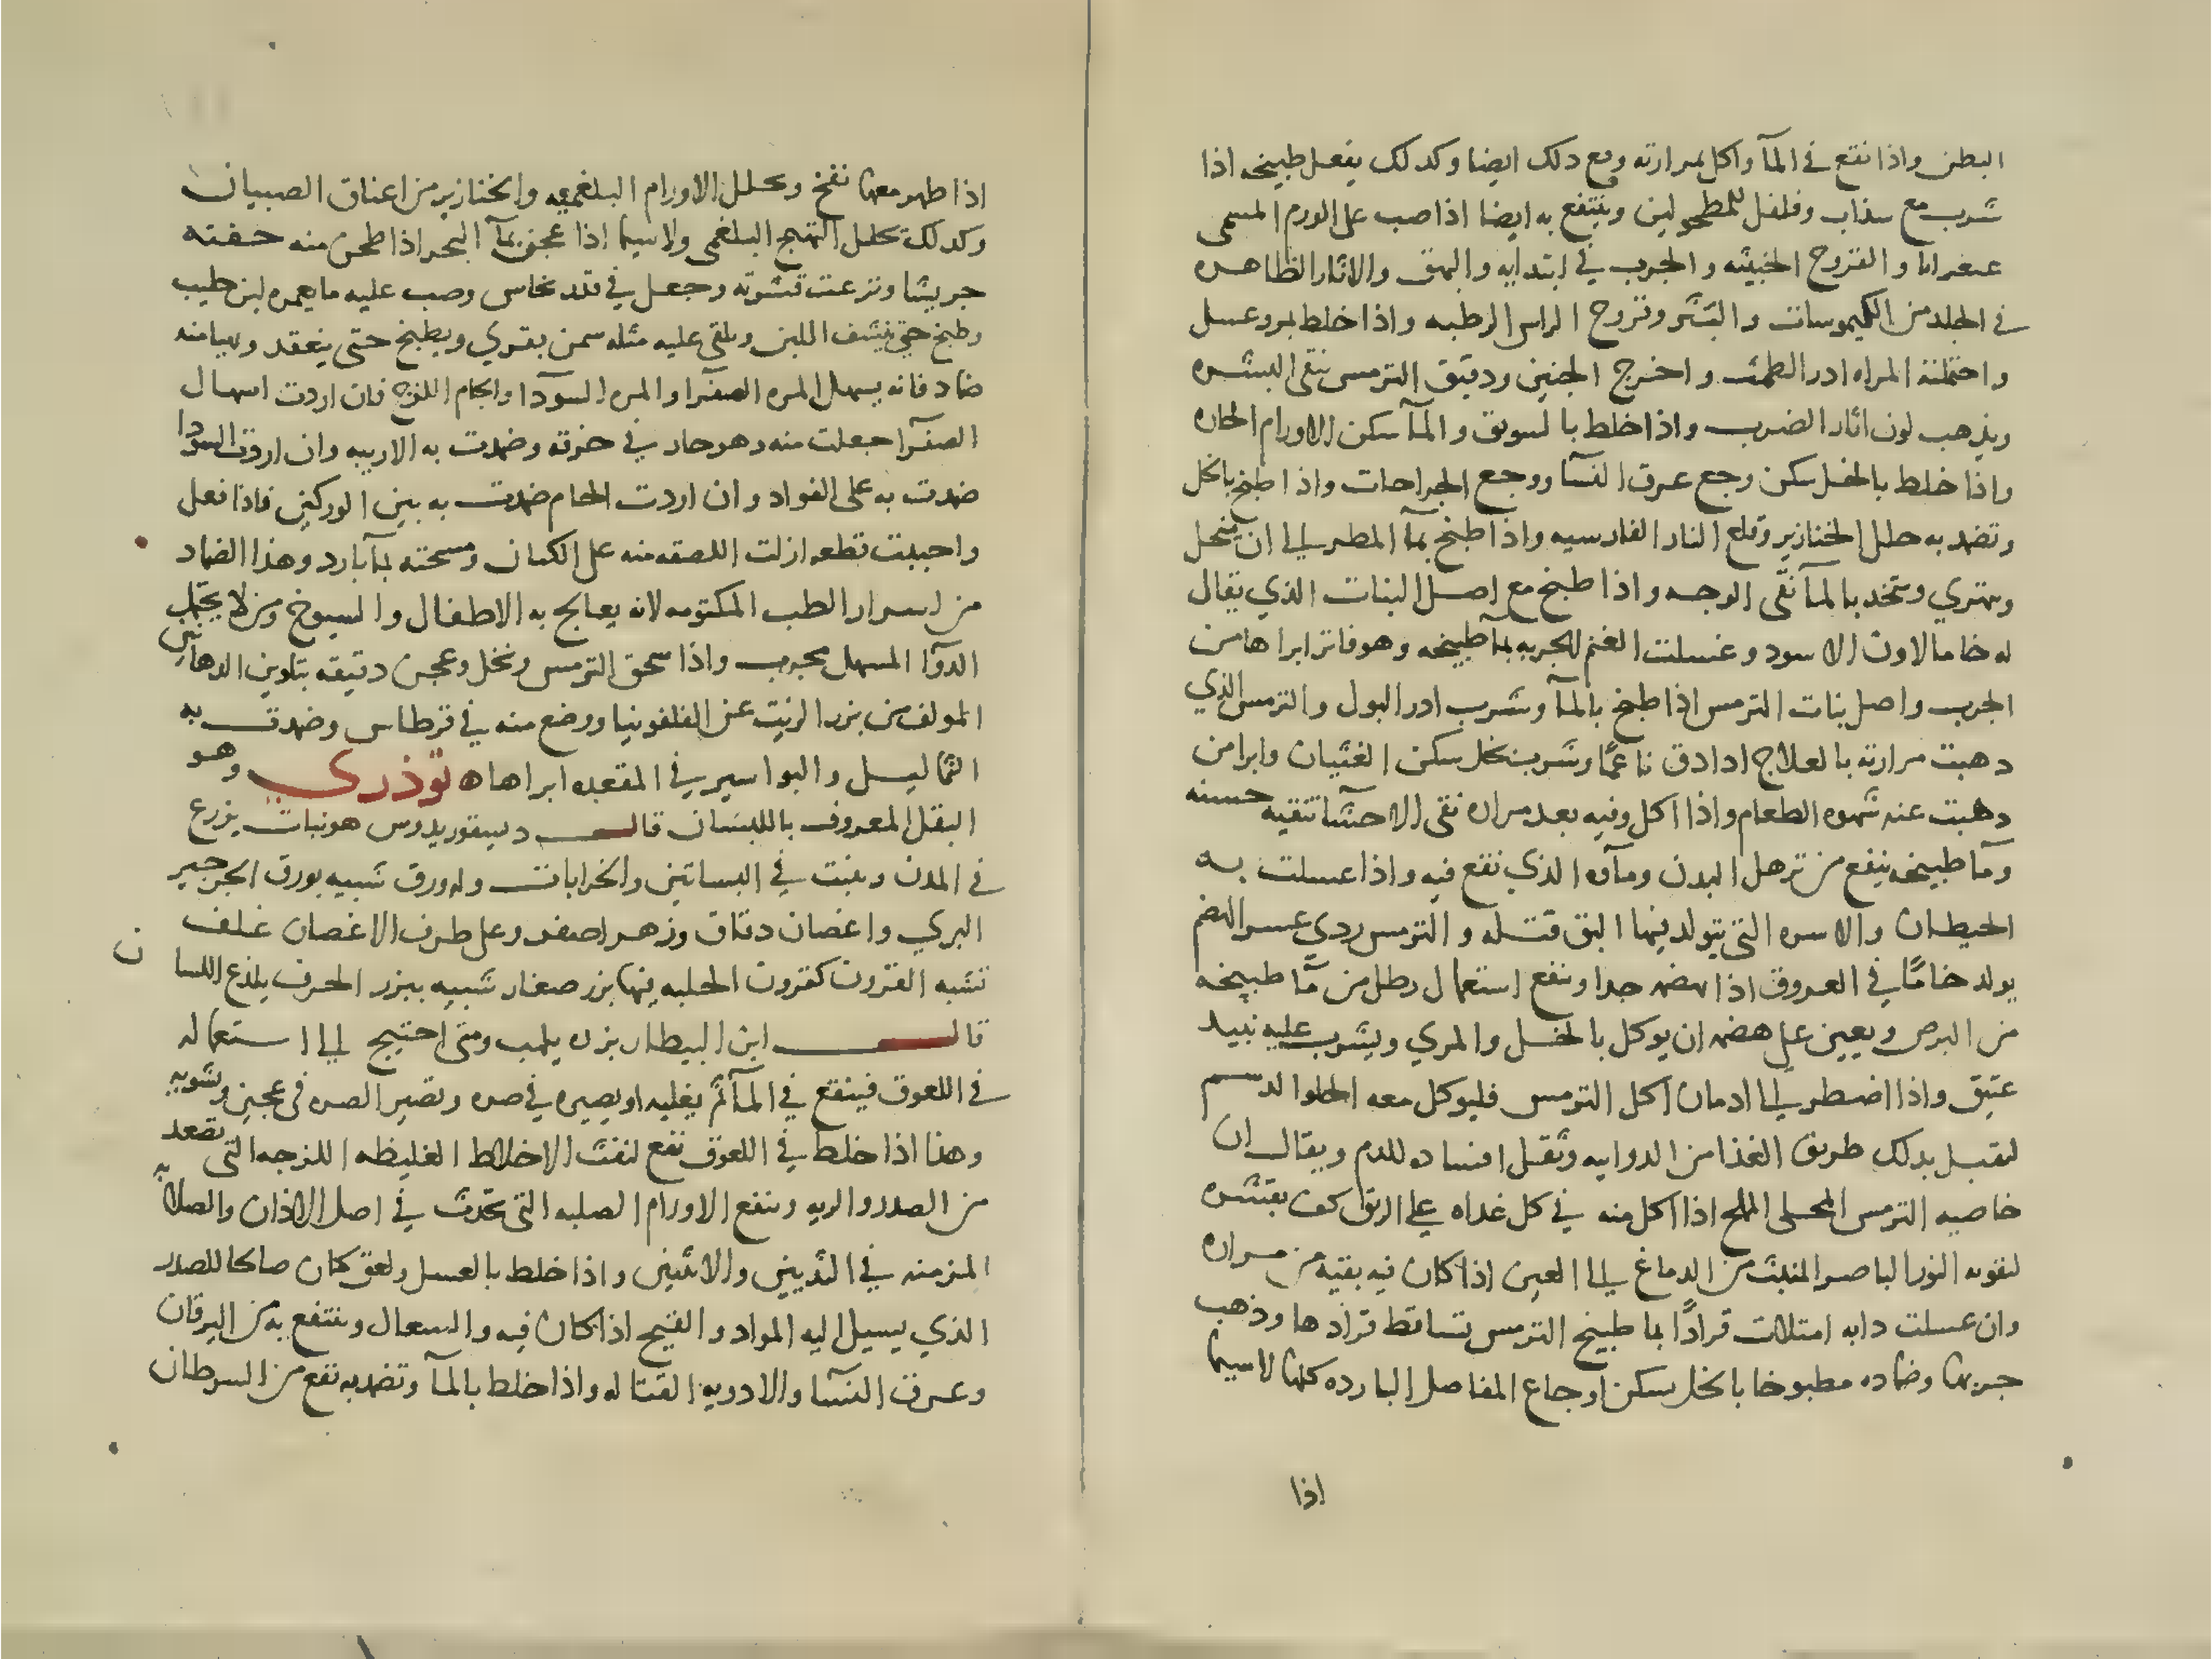 البطن واذا نقع في المآ واكل بمرارته ومع دلك ايضا وكدلك يفعل طبيخه اذا
شرب مع سذاب وفلفل للمطحولين وينتفع به ايضا اذا صب على الورم المسمى
عنغرانا والقروح الخبيثه والجرب في ابتدايه والبهق والاثار الظاهره
في الجلد من الكيموسات والبثر وقروح الراس الرطبه واذا خلط بمر وعسل
واحتملته المراه ادر الطمث واخرج الجنين ودقيق الترمس ينقى البشره
ويذهب لون اثار الضرب واذا خلط بالسويق والمآ سكن الاورام الحاره
واذا خلط بالخل سكن وجع عرق النسآ ووجع الجراحات واذا طبخ بالخل
وتضمد به حلل الخنازير وقلع النار الفارسيه واذا طبخ بمآ المطر الى ان ينحل
ويتهري ويتخد بالمآ نقى الوجه واذا طبخ مع اصل النبات الذي يقال
له خامالاون الاسود وغسلت الغنم الجربه بمآ طبيخه وهو فاتر ابراها من
الجرب واصل نبات الترمس اذا طبخ بالمآ وشرب ادر البول والترمس الذي
دهبت مرارته بالعلاج ادا دق ناعمًا وشرب بخل سكن الغثيان وابرا من
دهبت عنه شهوه الطعام واذا اكل وفيه بعد مراره نقى الاحشآ تنقيه حسنه
ومآ طبيخه ينفع من ترهل البدن ومآوه الذي نقع فيه واذا غسلت به
الحيطان والاسره التي يتولد فيها البق قتله والترمس ردي عسر الهضم
يولد خامًا في العروق اذا لم يهضم جدا وينفع استعمال رطل من مآ طبيخه
من البرص ويعين على هضمه ان يوكل بالخل والمري ويشرب عليه نبيد
عتيق واذا اضطر الى ادمان اكل الترمس فليوكل معه الحلو الدسم
لتقبل بدلك طريق الغذا من الدوايه وتقل افساده للدم ويقال ان
خاصيه الترمس المحلى المملح اذا اكل منه في كل غداه على الريق كف بقشره
لتقويه النور الباصر المنبث من الدماغ الى العين اذا كان فيه بقيه من مراره
وان غسلت دابه امتلات قرادًا بما طبيخ الترمس تساقط قرادها وذهب
جربها وضماده مطبوخا بالخل يسكن اوجاع المفاصل البارده كلها لاسيما
اذا
اذا ظهر معها نفخ ويحلل الاورام البلغميه والخنازير من اعناق الصبيان
وكدلك يحلل التهيج البلغمى ولاسيما اذا عجن بمآ البحر اذا طحن منه حفنه
جريشا ونزعت قشوره وجعل في قدر نحاس وصب عليه ما يغمره لبن حليب
وطبخ حتى ينشف اللبن ويلقى عليه مثله سمن بقري ويطبخ حتى ينعقد ويهيا منه
ضماد فانه يسهل المره الصفرآ والمره السوآدا والخام اللزج فان اردت اسهال
الصفرآ جعلت منه وهو حار في خرقه وضمدت به الاربيه وان اردت السودا
ضمدت به على الفواد وان اردت الخام ضمدت به بين الوركين فاذا فعل
واحببت قطعه ازلت اللصقه منه على المكان ومسحته بمآ بارد وهذا الضماد
من اسرار الطب المكتومه لانه يعالج به الاطفال والشيوخ ومن لا يحتمل
الدوآ المسهل مجرب واذا سحق الترمس ونخل وعجن دقيقه بتلوين الدهانين
المولف من بزر الزيت عن القلفونيا ووضع منه في قرطاس وضمدت به
الثماليل والبواسير في المقعده ابراها ه توذري وهو
البقل المعروف باللبسان قال ديسقوريدوس هو نبات يزرع
في المدن وينبت في البساتين والخرابات وله ورق شبيه بورق الجرجير
البري واغصان دقاق وزهر اصفر وعلى طرف الاغصان غلف
تشبه القرون كقرون الحلبه فيها بزر صغار شبيه ببزر الحرف يلذع اللسان
قال ابن البيطار بزره يلهب ومتى احتيج الى استعماله
في اللعوق فينقع في المآ ثم يغليه او يصيره في صره وتصير الصره في عجين وتشويه
وهذا اذا خلط في اللعوق نفع لنفث الاخلاط الغليظه اللزجه التى تصعد
من الصدر والريه وينفع الاورام الصلبه التى تحدث في اصل الاذان والصلابه
المزمنه في الثديين والانثيين واذا خلط بالعسل ولعق كان صالحا للصدر
الذي يسيل اليه المواد والقيح اذا كان فيه والسعال وينتفع به من اليرقان
وعرق النسآ والادويه القتاله واذا خلط بالمآ وتضمد به نفع من السرطان